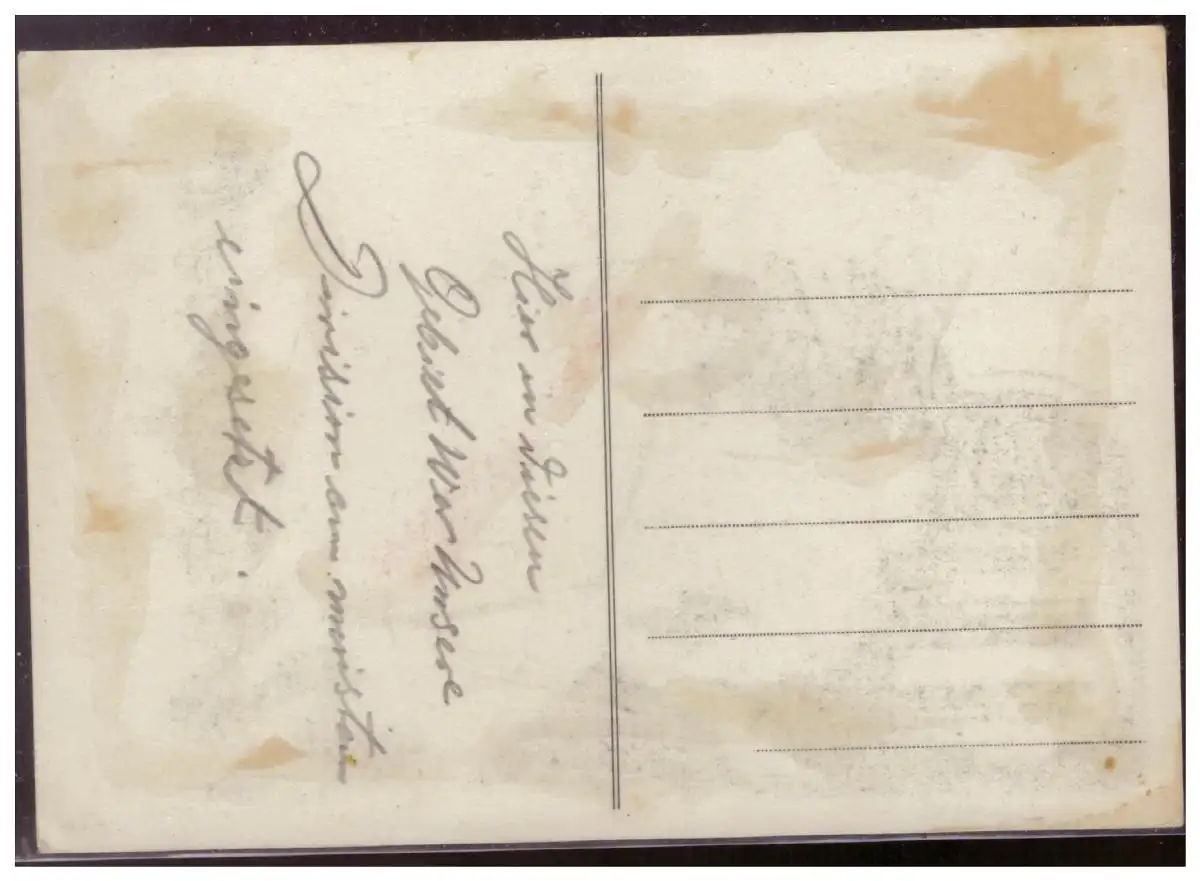 Hier in diesen
Gebiet War Unsere
Division am meisten
eingesetzt.